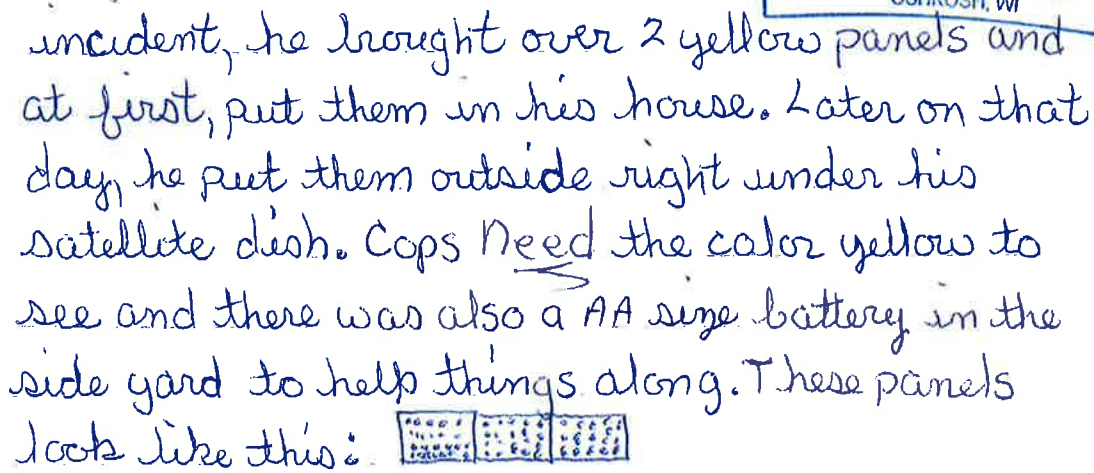 OSHKOSH, WI
incident, he brought over 2 yellow panels and
at first, put them in his house. Later on that
day, he put them outside right under his
satellite dish. Cops Need the color yellow to
see and there was also a AA size battery in the
side yard to help things along. These panels
look like this: